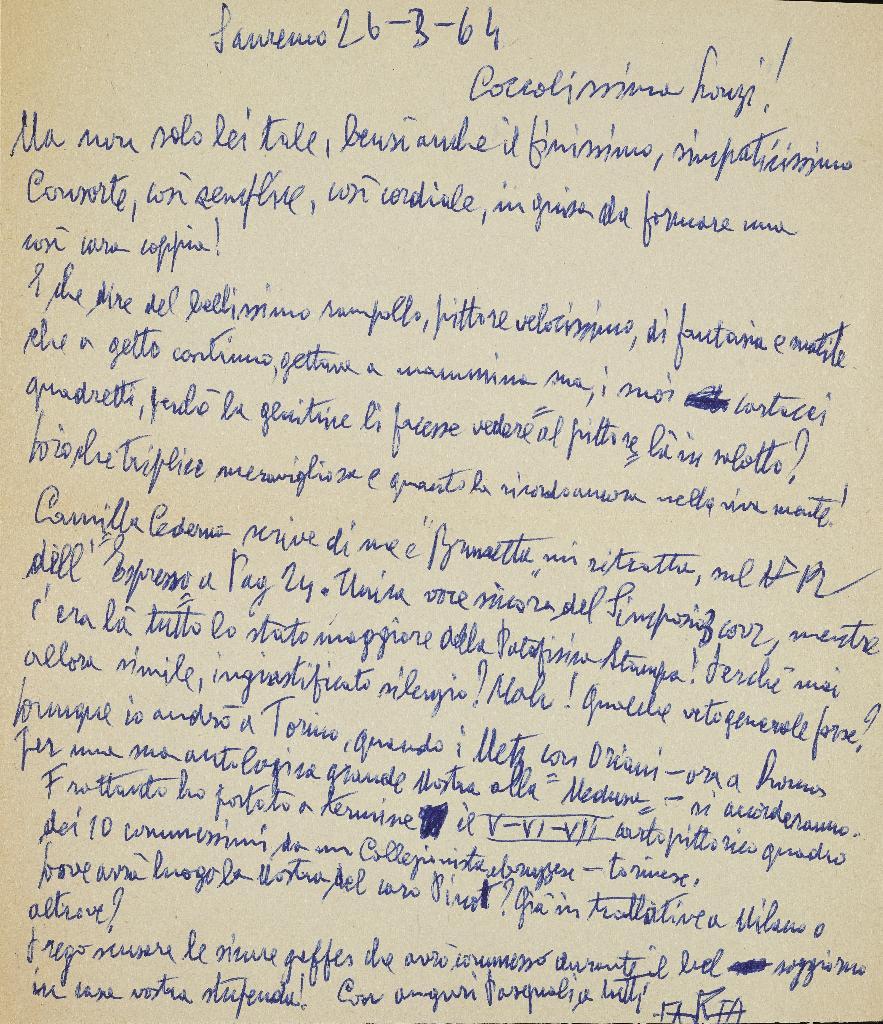 Sanremo 26-3-64
Coccolissima
Ma non solo lei tale, bensì anche il finissimo, simpaticissimo
Consorte, così semplice, così cordiale, in guisa da formare una
così cara coppia!
E che dire del bellissimo rampollo, pittore velocissimo, di fantasia e
che a getto continuo, gettava a mammina sua, i suoi cartacei
quadretti, perché la genitrice li facesse vedere al pittore là in salotto?
triplice meravigliosa e quanto la ricordo ancora nella viva mente!
Camilla Cederna scrive di me e "Brunetta" mi ritratta, sul N° 12
dell'"Espresso" a Pag 24. Unica voce sinora del Simposio, mentre
c'era là tutto lo stato maggiore della Patafisica Stampa! Perché mai
allora simile, ingiustificato silenzio? Mah! Qualche veto generale forse?
Comunque io andrò a Torino, quando i Metz con Oriani - ora a Roma
per una sua antologica grande Mostra alla "Medusa" - si accorderanno.
Frattanto ho portato a termine il V-VI-VII cartopittorico quadro
dei 10 commessimi da un Collezionista - torinese.
Dove avrà luogo la Mostra del caro Pinot? Già in trattative a Milano o
altrove?
Prego scusare le sicure gaffes che avrò commesso durante il bel soggiorno
in casa vostra stupenda! Con auguri Pasquali a tutti
FARFA